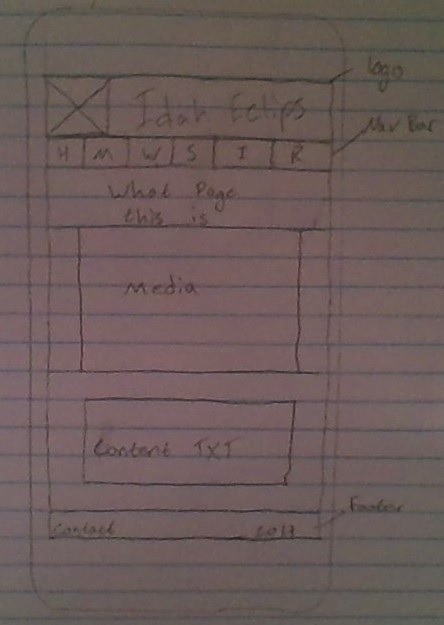 logo
Idah Eclips
Nav Bar
H M W S I R
What Page
this is
Media
Content TXT
Footer
Contact 2017